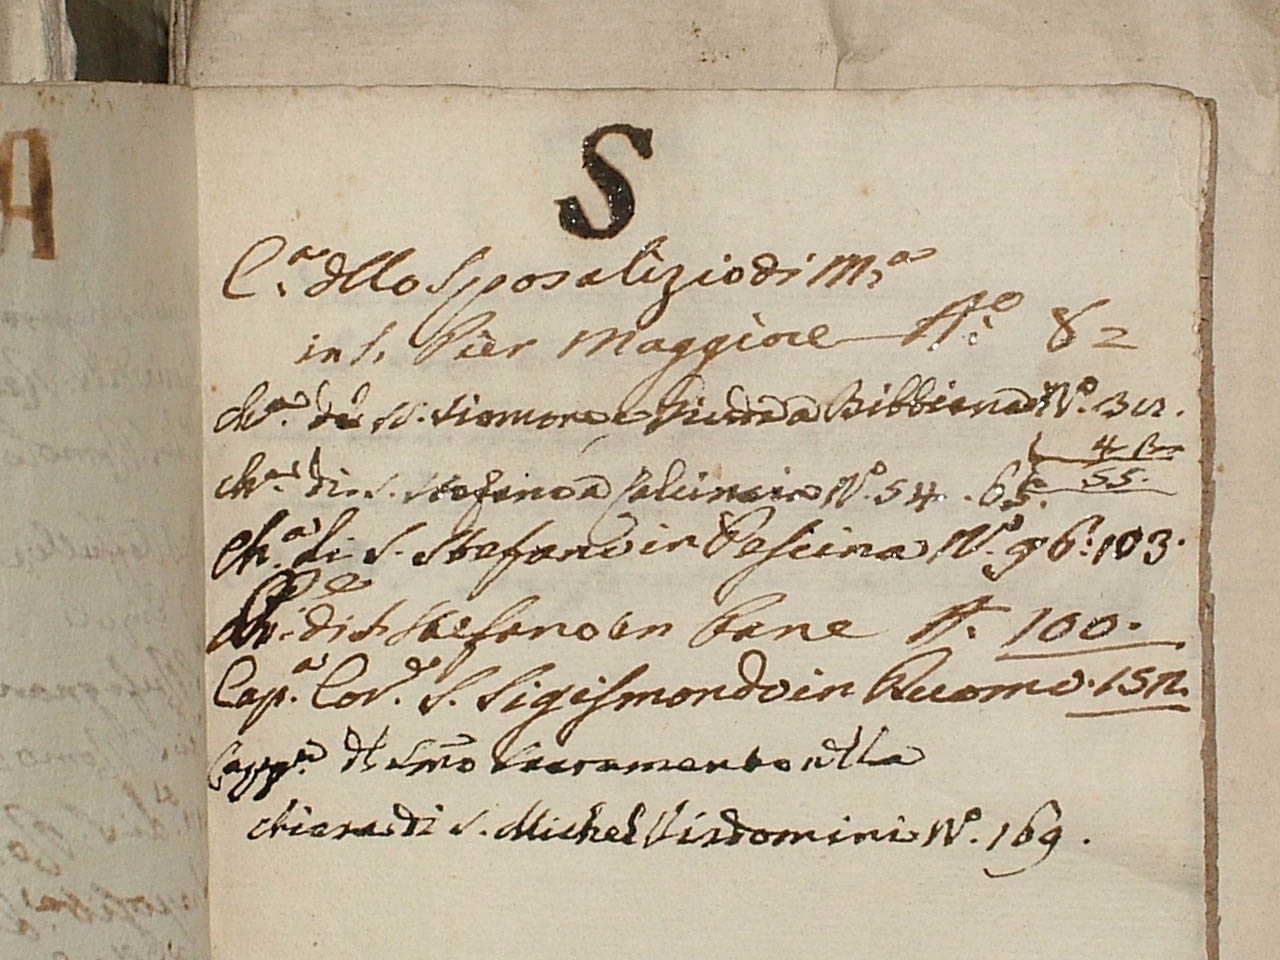 A
S
C.a dllo Sposalizio di M.a
in S. Pier Maggiore N.o 82
Ch.a di S. e Bibbiena N.o 32.
4
55.
Ch.a di S. Stefano a Calcinaia N.o 54. 65.
Ch.a di S. Stefano in Pescina N.o 96. 103.
Ch.a di S. Stefano in Pane N. 100.
Cap.a Cor.o S. Sigismondo in Duomo. 152.
Capp.a dl Smo Sacramento nlla
chiesa di S. Michel Visdomini N.o 169.